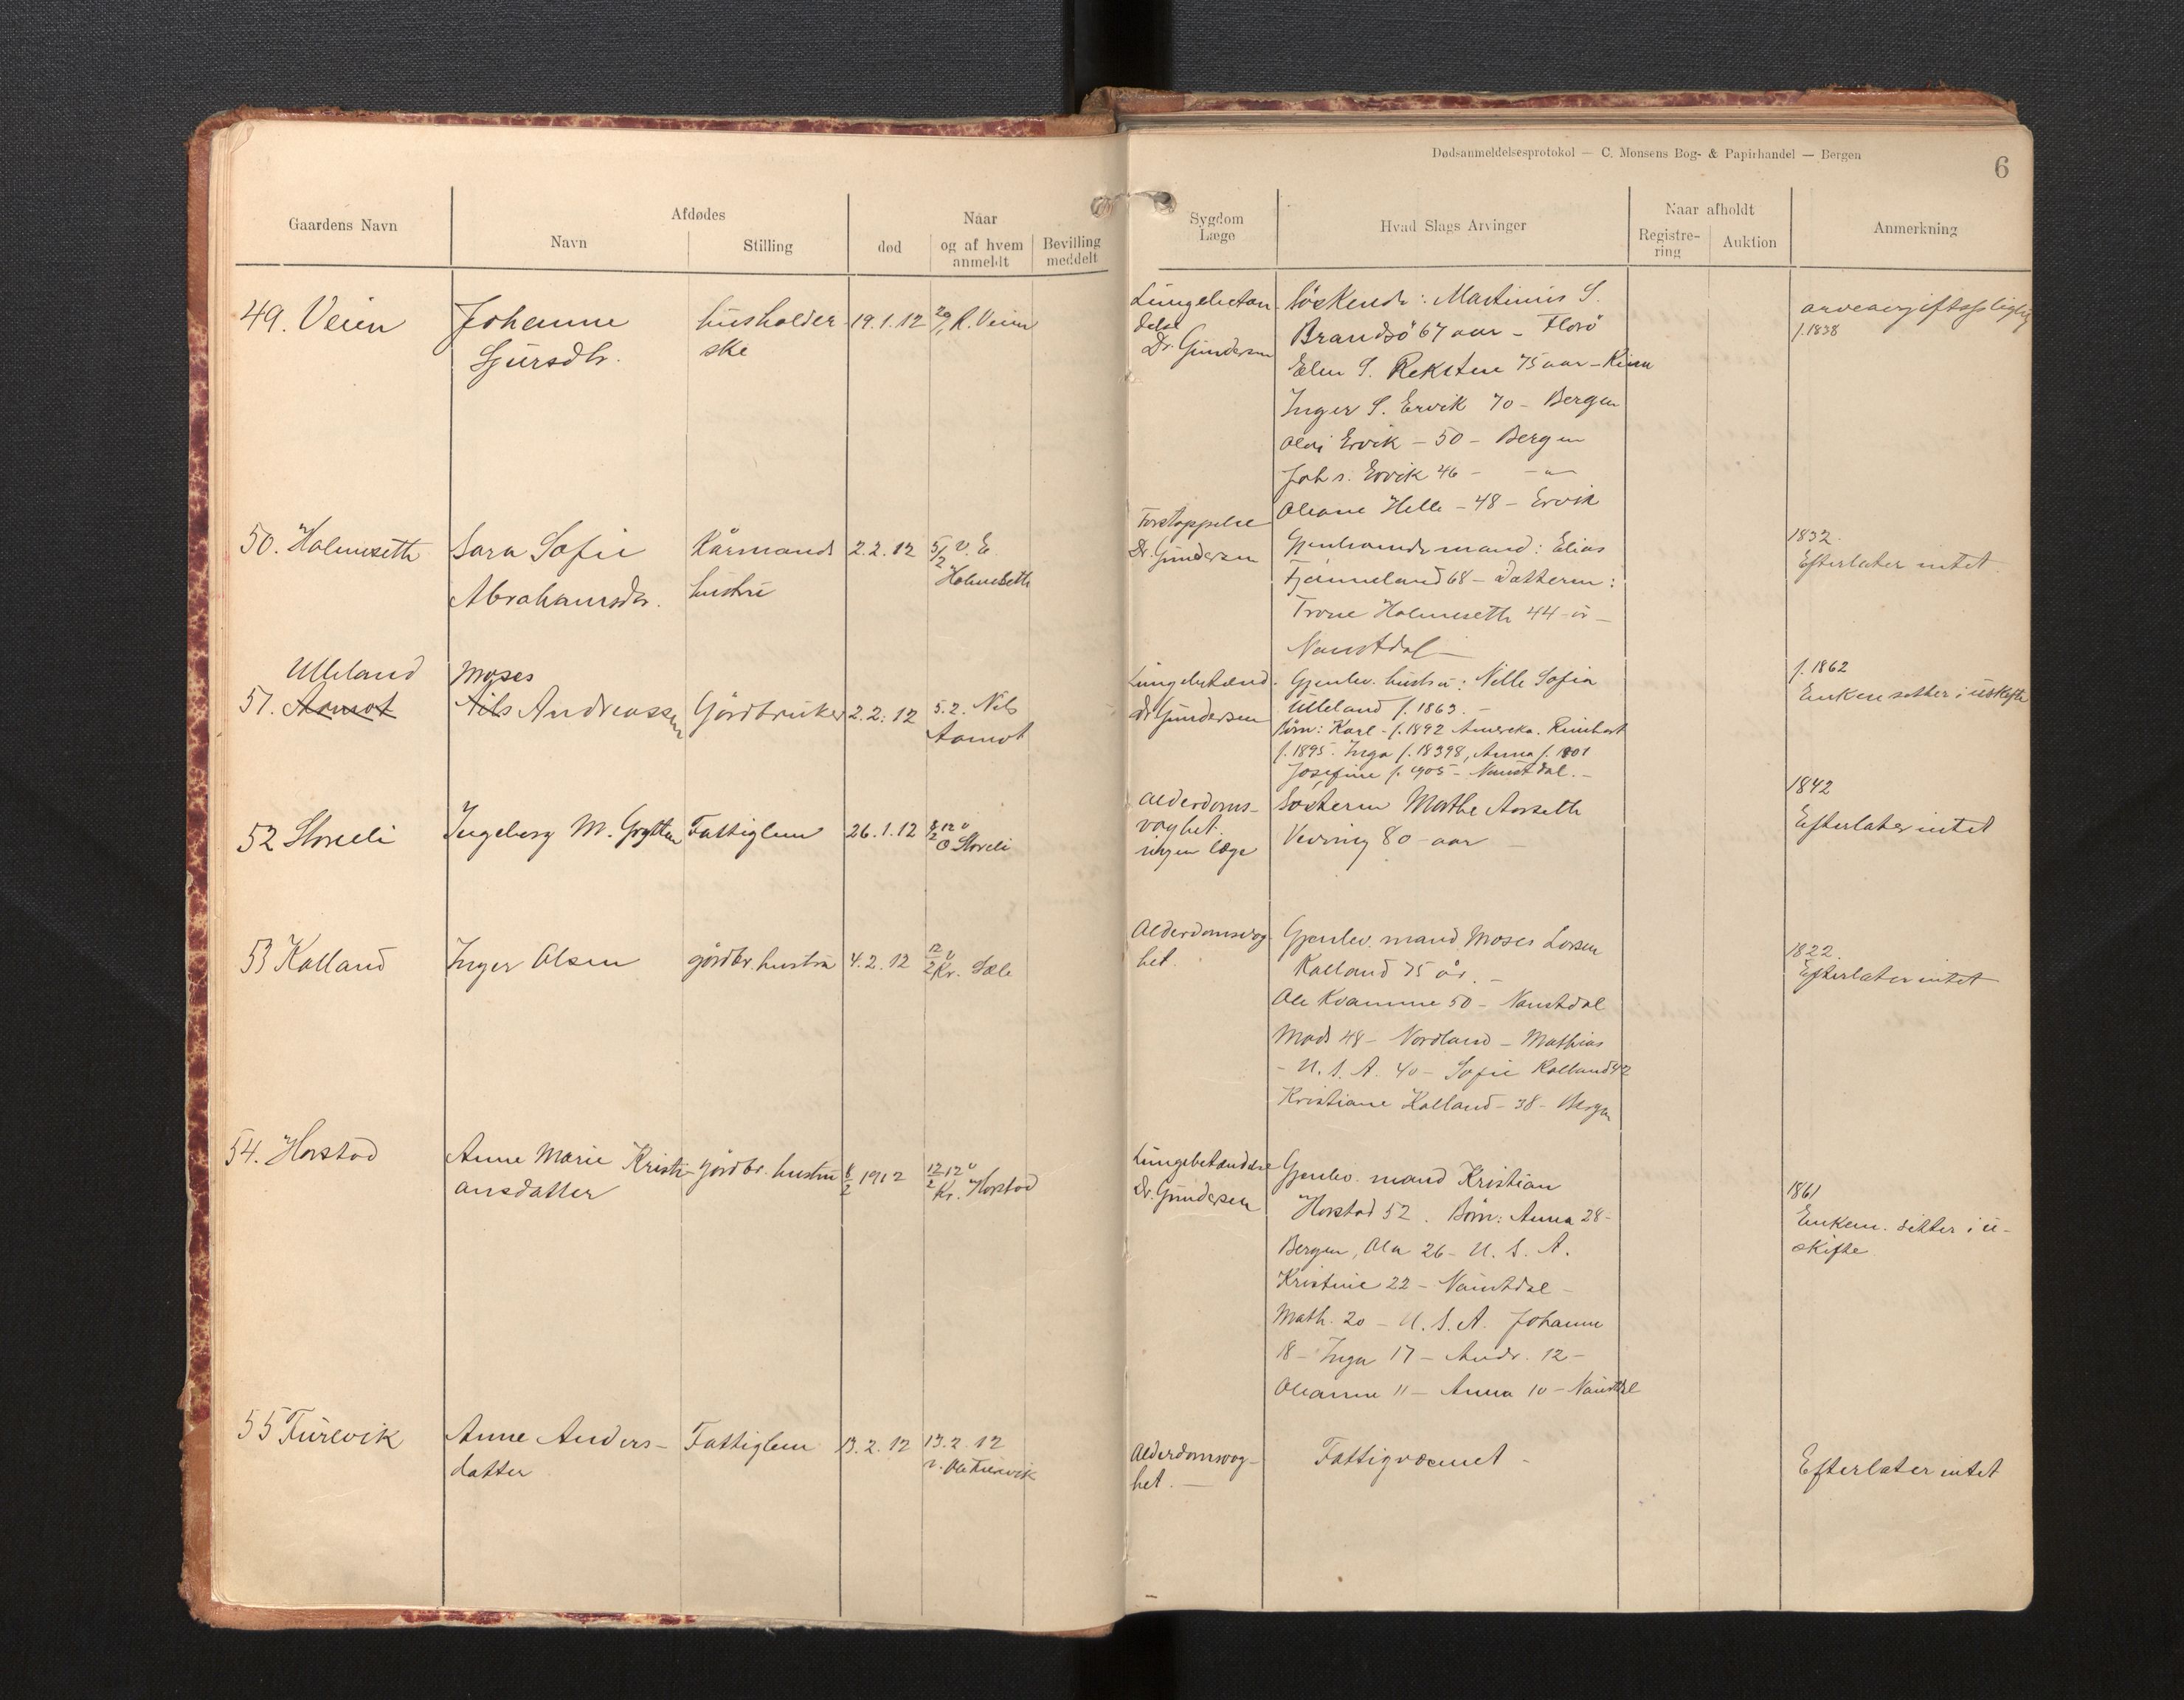 Dødsanmeldelsesprotokol — C. Monsens Bog- & Papirhandel — Bergen
6
Gaardens Navn
Afdødes
Navn
Stilling
Naar
død
og af hvem anmeldt
Bevilling meddelt
Sygdom Læge
Hvad Slags Arvinger
Naar afholdt
Registre-ring
Auktion
Anmerkning
49. Veien
Johanne
Sjursdtr.
husholder-
ske
19.1.12
29/1 R. Veien
Lungebetæn
delse
Dr. Gundersen
Søskende: Martinus S.
Brandsö 67 aar - Florö
Elen S. Reksten 75 aar - Kinn
Inger S. Ervik 70 - Bergen
Ervik - 50 - Bergen
Joh s. Ervik 46 - - " -
Oleane Helle - 48 - Ervik
arveavgiftspligtig
f. 1838
50. Holmeseth
Sara Sofie
Abrahamsdr.
Kårmands
hustru
2.2.12
5/2 v. E.
Holmeseth
Forstoppelse
Dr. Gundersen
Gjenlevende mand: Elias
Fjømmeland 68 - datteren:
Trone Holmeseth 44 år -
Naustdal -
1832.
Efterlater intet.
Ulleland
51. Aamot
Moses
Nils Andreassen
Gårdbruker
2.2.12
5.2. Nils
Aamot
Lungebetænd.
dr Gundersen
Gjenlev. hustru: Nille Sofia
Ulleland f. 1863. -
Børn: Karl - f. 1892 Amerika. Reinhart
f. 1895. Inga f. 18398, Anna f. 1901
Josefine f. 1905 - Naustdal. -
f. 1862
Enken sitter i uskifte
52 Storeli
Ingeborg M. Grytten
Fattiglem
26.1.12
8/2 12 v
O Storeli
Alderdoms-
svaghet.
ingen læge
Søsteren Marthe Aarseth
Vevring 80 - aar -
1842
Efterlater intet
53 Kalland
Inger Olsen
gårdbr. hustru
4.2.12
12/2 v
Kr. Sæle
Alderdomsvag-
het.
Gjenlev. mand Moses Larsen
Kalland 75 år. -
Ole Kvamme 50 - Naustdal
Mads 48 - Nordland - Mathias
- U. S. A. 40 - Sofie Kalland 42
Kristiane Kalland - 38 - Bergen
1822.
Efterlater intet
54. Horstad
Anne Marie Kristi-
ansdatter
gårdbr. hustru
8/2 1912
12/2 12 v
Kr. Horstad
Lungebetændelse
Dr. Gundersen
Gjenlev. mand Kristian
Horstad 52. Børn: Anna 28 -
Bergen, Ola 26 - U. S. A.
Kristine 22 - Naustdal -
Math. 20 - U. S. A. Johanne
18 - Inga 17 - Andr. 12 -
Oleanne 11 - Anna 10 - Naustdal
1861
Enkem. sitter i u-
skifte.
55 Furevik
Anne Anders-
datter
Fattiglem
13.2.12
13.2 12
v. Ole Furevik
Alderdomsvag-
het. -
Fattigvæsnet -
Efterlater intet